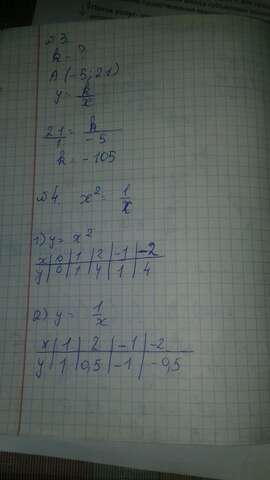 №3
k = ?
A (-5; 21)
y = k/x
21/1 = k/-5
k = -105
№4. x² = 1/x
1) y = x²
x | 0 | 1 | 2 | -1 | -2
y | 0 | 1 | 4 | 1 | 4
2) y = 1/x
x | 1 | 2 | -1 | -2
y | 1 | 0,5 | -1 | -0,5